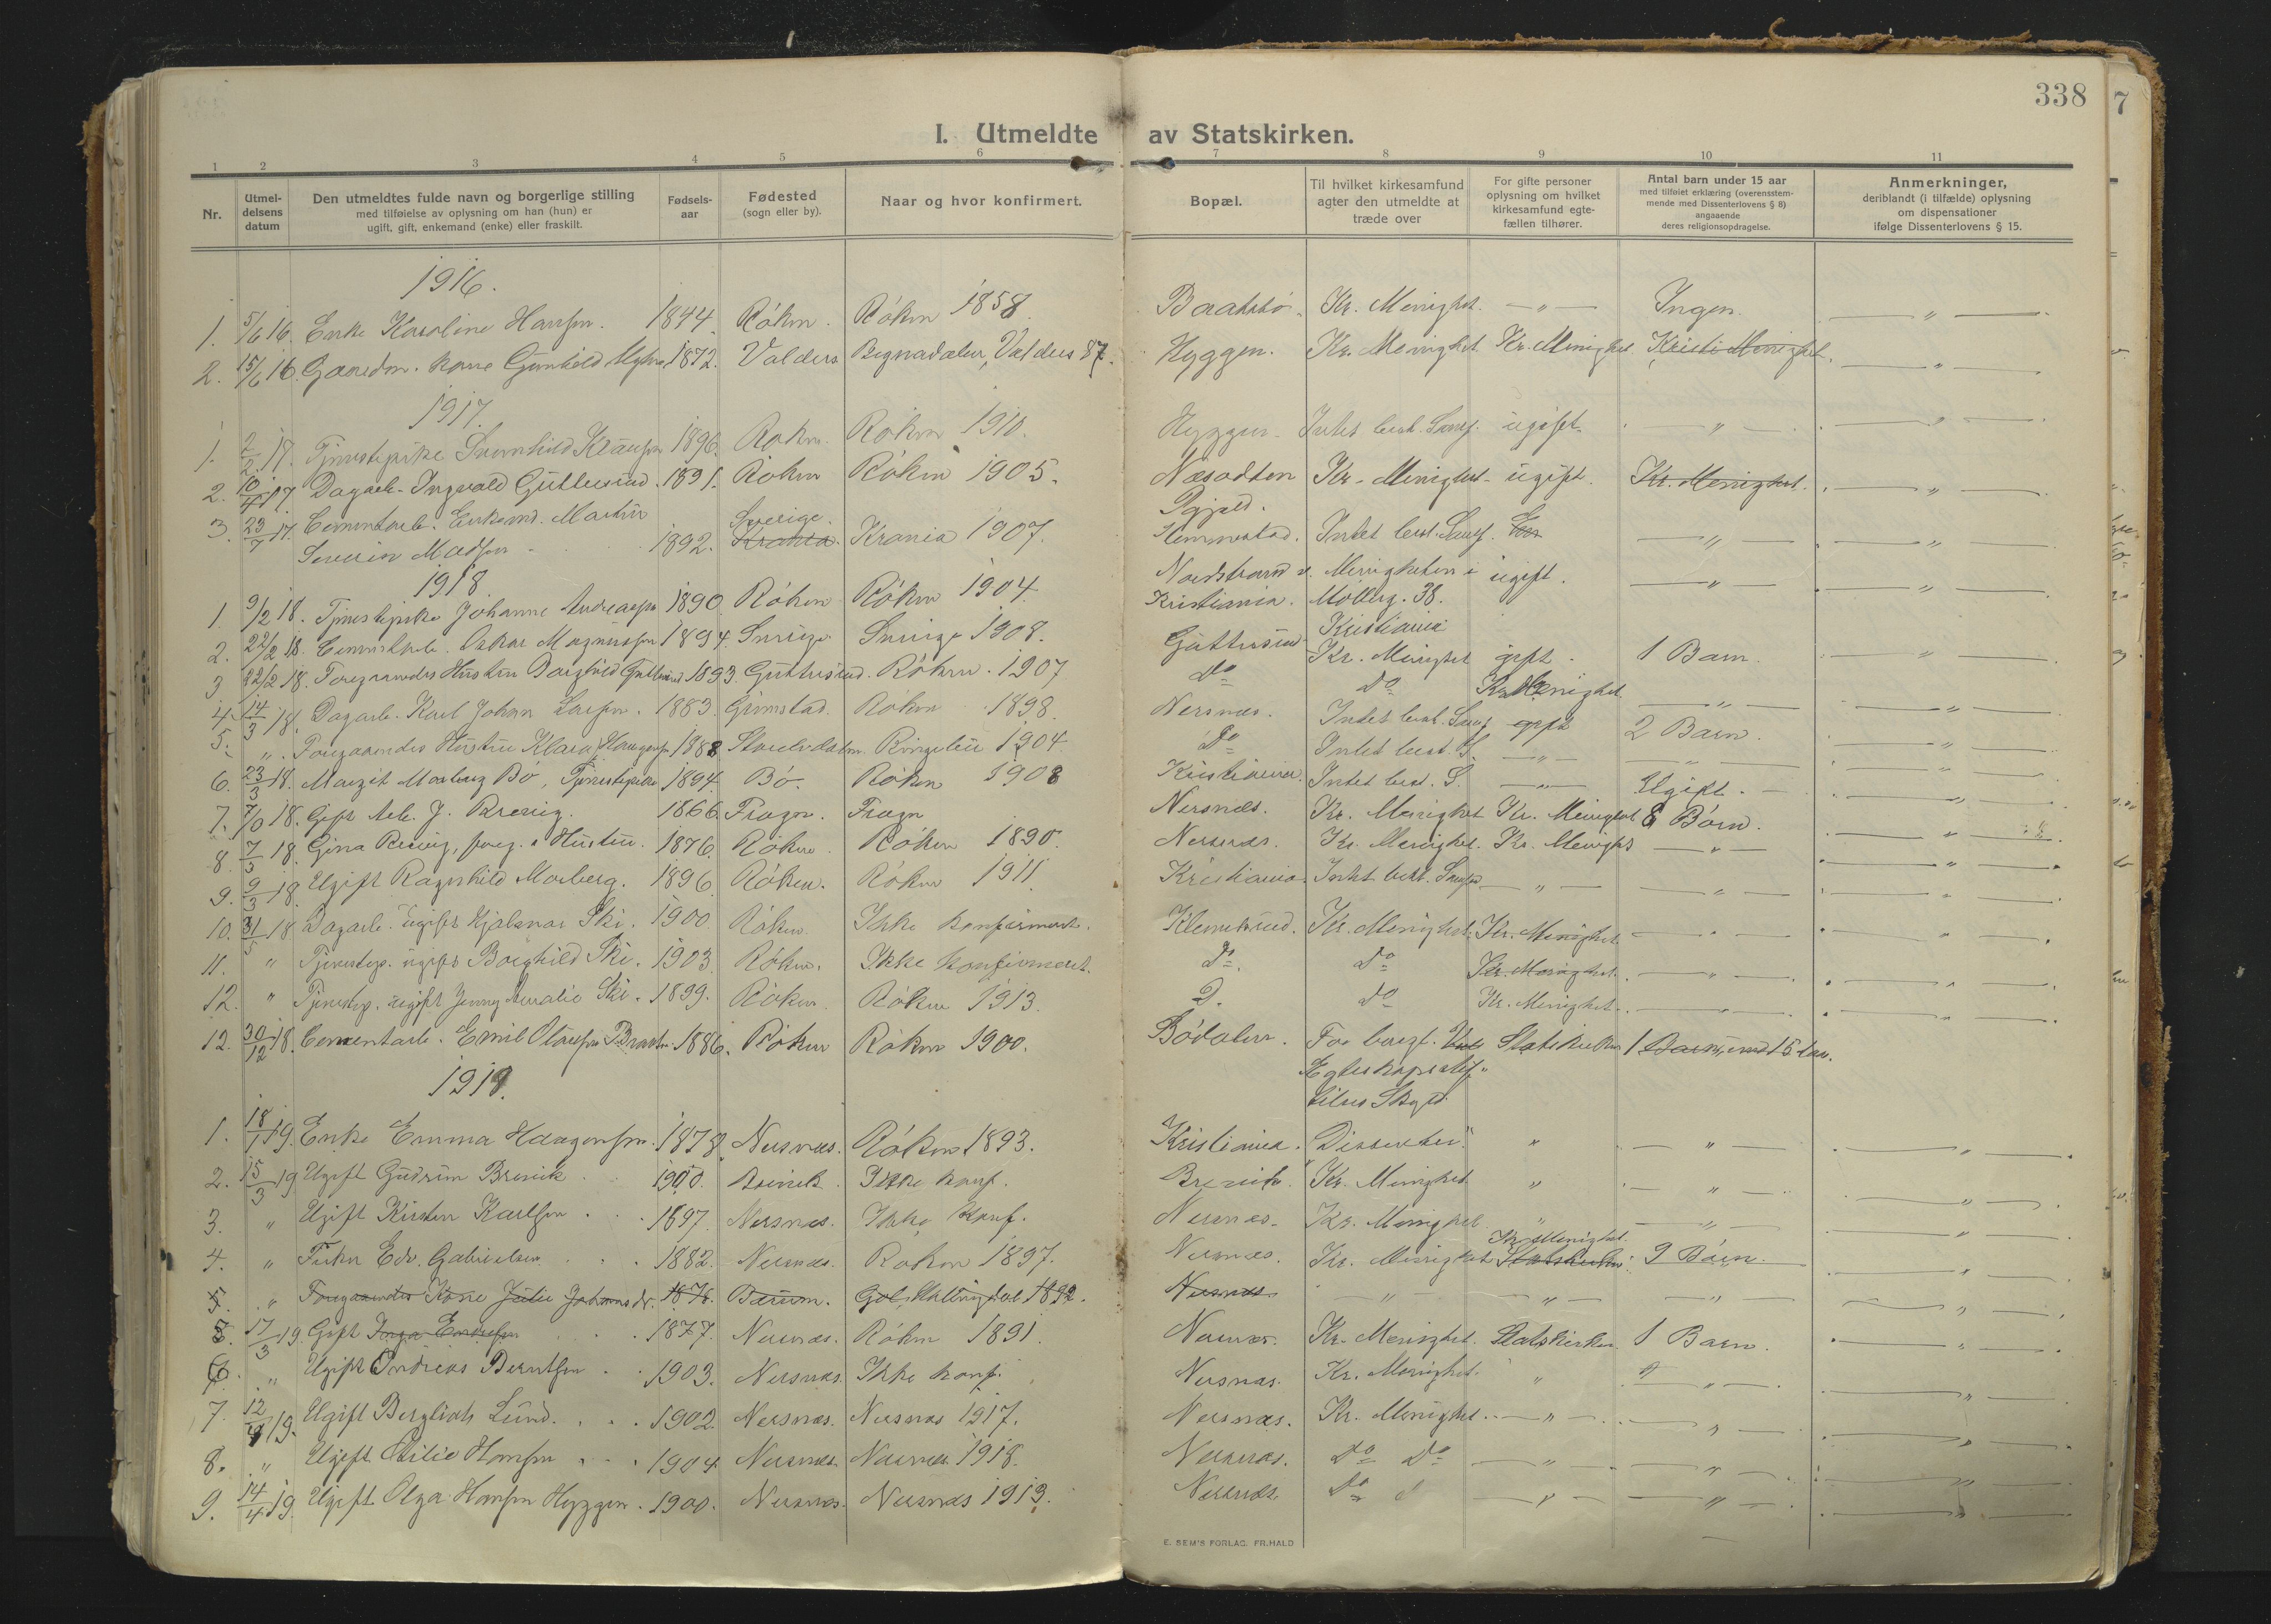 338
7
I. Utmeldte av Statskirken.
1 2 3 4 5 6 7 8 9 10 11
Nr.
Utmel-
delsens
datum
Den utmeldtes fulde navn og borgerlige stilling
med tilføielse av oplysning om han (hun) er
ugift, gift, enkemand (enke) eller fraskilt.
Fødsels-
aar
Fødested
(sogn eller by).
Naar og hvor konfirmert.
Bopæl.
Til hvilket kirkesamfund
agter den utmeldte at
træde over
For gifte personer
oplysning om hvilket
kirkesamfund egte-
fællen tilhører.
Antal barn under 15 aar
med tilføiet erklæring (overensstem-
mende med Dissenterlovens § 8)
angaaende
deres religionsopdragelse.
Anmerkninger,
deriblandt (i tilfælde) oplysning
om dispensationer
ifølge Dissenterlovens § 15.
1916.
1. 5/6 16. Enke Karoline Hansen. 1844. Røken. Røken 1858. Kr. Menighet. — " — Ingen. — " —
2. 15/6 16. Gaardm. kone Gunhild 1872. Valders Begnadalen, Valders 87. Hyggen. Kr. Menighet Kr. Menighet Kristi Menighet. — " —
1917.
1. 2/2 17. Tjenestepike 1896. Røken. Røken 1910. Hyggen. Intet best. Samf. ugift. — " — — " —
2. 10/4 17. Dagarb. Ingvald Guttersrud. 1891. Røken Røken 1905. Næsodten Kr. Menighet ugift. Kr. Menighet. — " —
3. 23/7 17. Cementarb. Enkemd. Martin
Severin Madsen 1892. Sverige. Krania. Krania 1907. Intet best. Samf. — " — — " —
1918
1. 9/2 18. Tjenestepike Johanne Andreassen 1890 Røken Røken 1904. Nordstrand v. Menigheten i ugift. — " — — " —
Kristiania. Møllerg. 38.
Kristiania
2. 22/2 18. Cementarb. Oskar Magnussen 1894. Sverige Sverige 1908. Guttersrud Kr. Menighet gift. 1 Barn. — " —
3 22/2 18. Foregaaendes Hustru Borghild 1893. Guttersrud. Røken. 1907 Do Do Kr. Menighet — " — — " —
4. 14/3 18. Dagarb. Karl Johan Larsen. 1883. Grimstad. Røken 1898. Nersnes. Intet best. Samf. gift 2 Barn. — " —
5. " Foregaaendes Hustru Klara 1888 1904. Do Intet best. S. — " — — " — — " —
6. 23/3 18. Margit Morberg Bø, Tjenestepike 1894. Bø. Røken 1908 Kristiania. Intet best. S. — " — Ugift. — " —
7. 18. Gift Arb. J. 1866. Frogn. Frogn Nersnes. Kr. Menighet Kr. Menighet 8 Børn. — " —
8. 7/3 18. Gina foreg. s Hustru. 1876. Røken. Røken 1890. Nersnes. Kr. Menighet. Kr. Menighet — " — — " —
9. 9/3 18. Ugift Ragnhild Morberg. 1896. Røken. Røken 1911 Kristiania. Intet best. Samf. — " — — " — — " —
10. 31/5 18 Dagarb. ugift Hjalmar Ski. 1900 Røken. Ikke konfirmert. Klemetsrud. Kr. Menighet. Kr. Menighet. — " — — " —
11. " Tjenestep. ugift Borghild Ski. 1903. Røken. Ikke konfirmert. Do. Do Kr. Menighet. — " — — " —
12. " Tjenestep. ugift Jenny Amalie Ski. 1899. Røken Røken 1913. D. Do Kr. Menighet. — " — — " —
12. 30/12 18. Cementarb. Emil Olaussen 1886. Røken Røken 1900. Bødalen. For borgl. Statskirken 1 Barn under 15 aar.
Egteskapsstif.
1919.
1. 18/1 19. Enke Emma Haagensen. 1878. Nersnes. Røken 1893. Kristiania. Dissenter. " — " — — " —
2. 15/3 19 Ugift Gudrun Brenik 1900. Brenik. Ikke konf. Brenik. Kr. Menighet " — " — — " —
3. " Ugift Kirsten Karlsen 1897. Nersnes. Ikke konf. Nersnes. Kr. Menighet. " — " — — " —
4. " Fisker Edv. Gabrielsen 1882. Nersnes. Røken 1897. Nersnes. Kr. Menighet Statskirken. Kr. Menighet. 9 Børn. — " —
5. " Foregaaendes Kone Julie 1876. Bærum. Gol, Hallingdal 1892. Nersnes — " — — " — — " — — " —
5. 17/3 19. Gift 1877. Nersnes. Røken 1891. Nersnes. Kr. Menighet. Statskirken 1 Barn. — " —
6. " Ugift Andreas Berntsen 1903. Nersnes. Ikke konf. Nersnes. Kr. Menighet. " — " — — " —
7. 12/4 19. Ugift Bergliot Lund. 1902. Nersnes. Nersnes 1917. Nersnes. Kr. Menighet. — " — — " — — " —
8. " Ugift Otilie Hansen 1904. Nersnes. Nersnes 1918. Nersnes. Do Do — " — — " — — " —
9. 14/4 19. Ugift Olga Hansen Hyggen. 1900. Nersnes. Nersnes 1913. Nersnes Do — " — — " — — " —
E. SEM'S FORLAG. FR.HALD